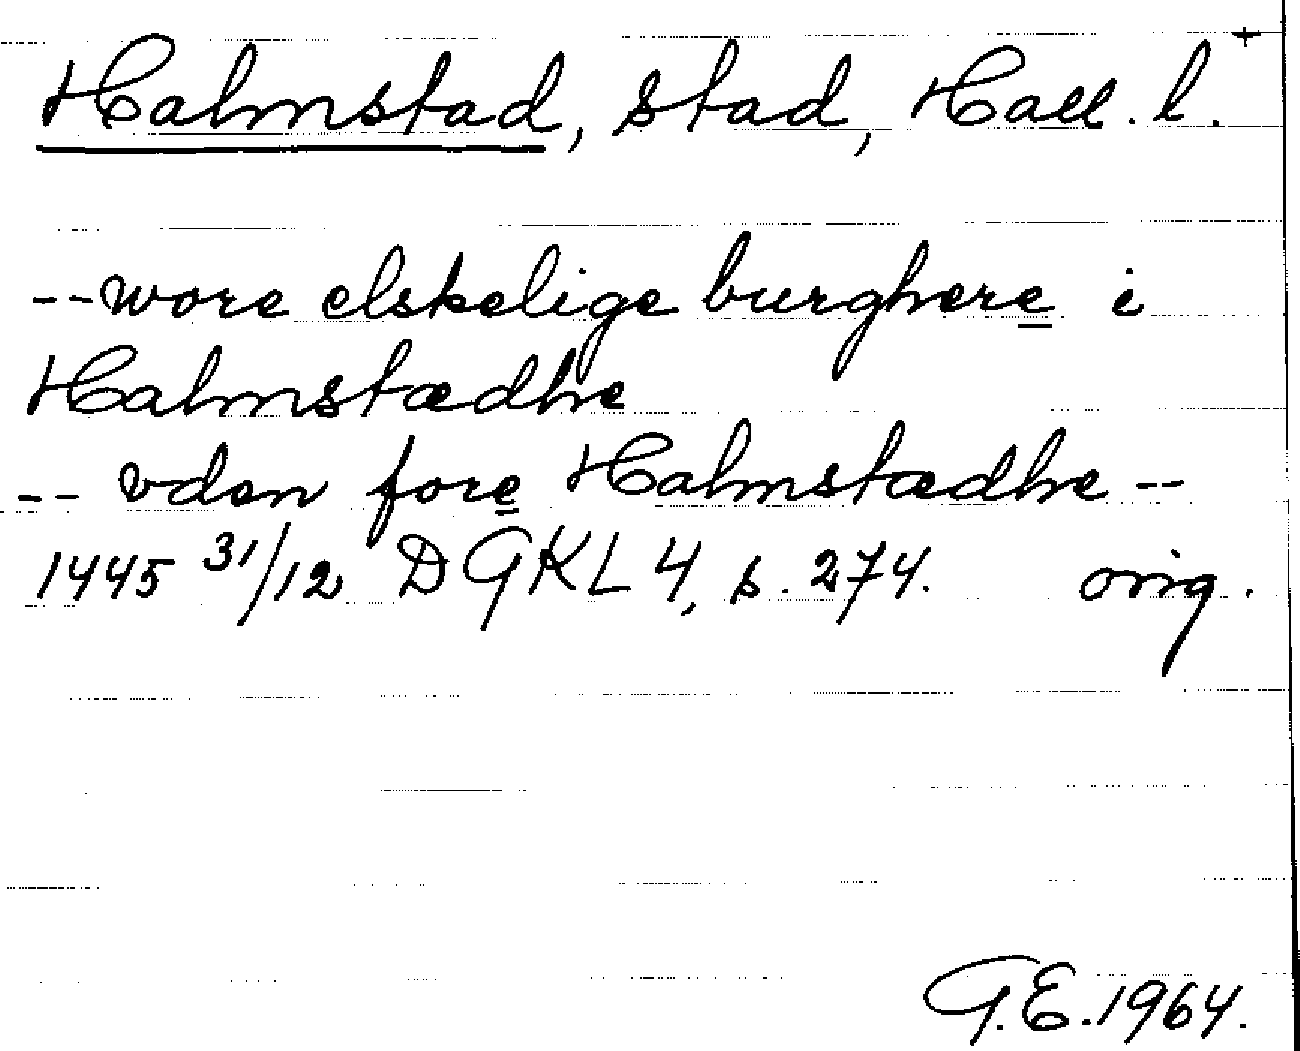 Halmstad, stad, Hall. l. +
--wore elskelige burghere i
Halmstædhe
-- vden fore Halmstædhe --
1445 31/12 DGKL 4, s. 274. orig.
G.E. 1964.